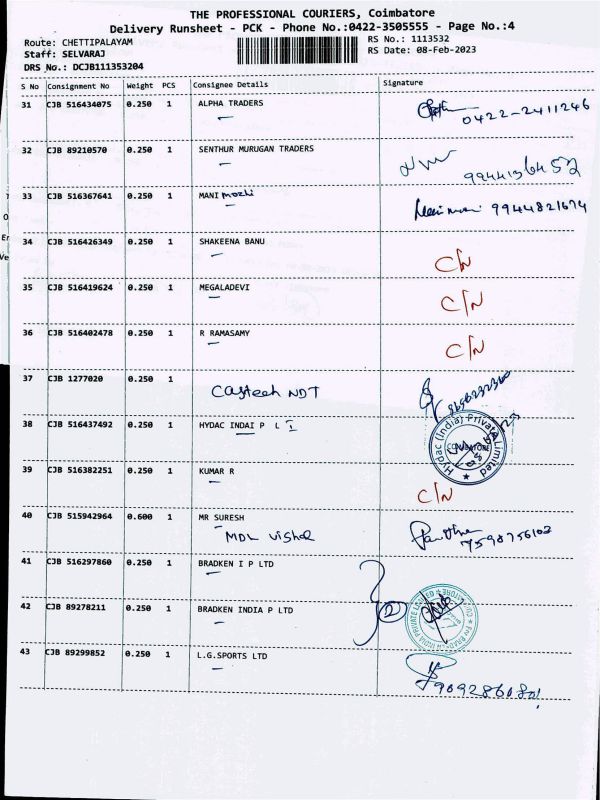 THE PROFESSIONAL COURIERS, Coimbatore
Delivery Runsheet - PCK - Phone No.:0422-3505555 - Page No.:4
Route: CHETTIPALAYAM RS No.: 1113532
Staff: SELVARAJ RS Date: 08-Feb-2023
DRS No.: DCJB111353204
S No Consignment No Weight PCS Consignee Details Signature
31 CJB 516434075 0.250 1 ALPHA TRADERS
0422-2411246
32 CJB 89210570 0.250 1 SENTHUR MURUGAN TRADERS
9944136452
33 CJB 516367641 0.250 1 MANI mozhi
9944821674
34 CJB 516426349 0.250 1 SHAKEENA BANU
C/N
35 CJB 516419624 0.250 1 MEGALADEVI
C/N
36 CJB 516402478 0.250 1 R RAMASAMY
C/N
37 CJB 1277020 0.250 1
Castech NDT
38 CJB 516437492 0.250 1 HYDAC INDAI P L I
Hydac (India) Private Limited
COIMBATORE
39 CJB 516382251 0.250 1 KUMAR R
C/N
40 CJB 515942964 0.600 1 MR SURESH
MDL Vishal
7598756102
41 CJB 516297860 0.250 1 BRADKEN I P LTD
42 CJB 89278211 0.250 1 BRADKEN INDIA P LTD
2
43 CJB 89299852 0.250 1 L.G.SPORTS LTD